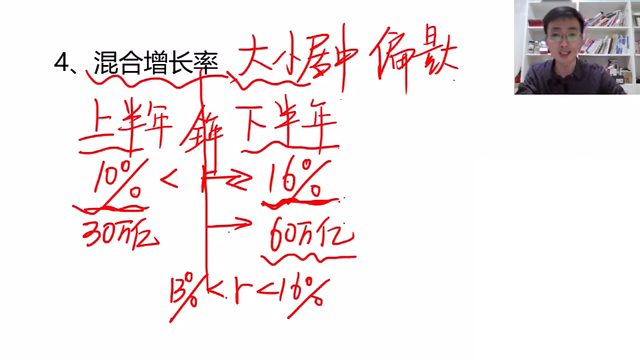 4、混合增长率 大小居中 偏基大
上半年 全年 下半年
10% < r 16%
30万亿 60万亿
13% < r < 16%